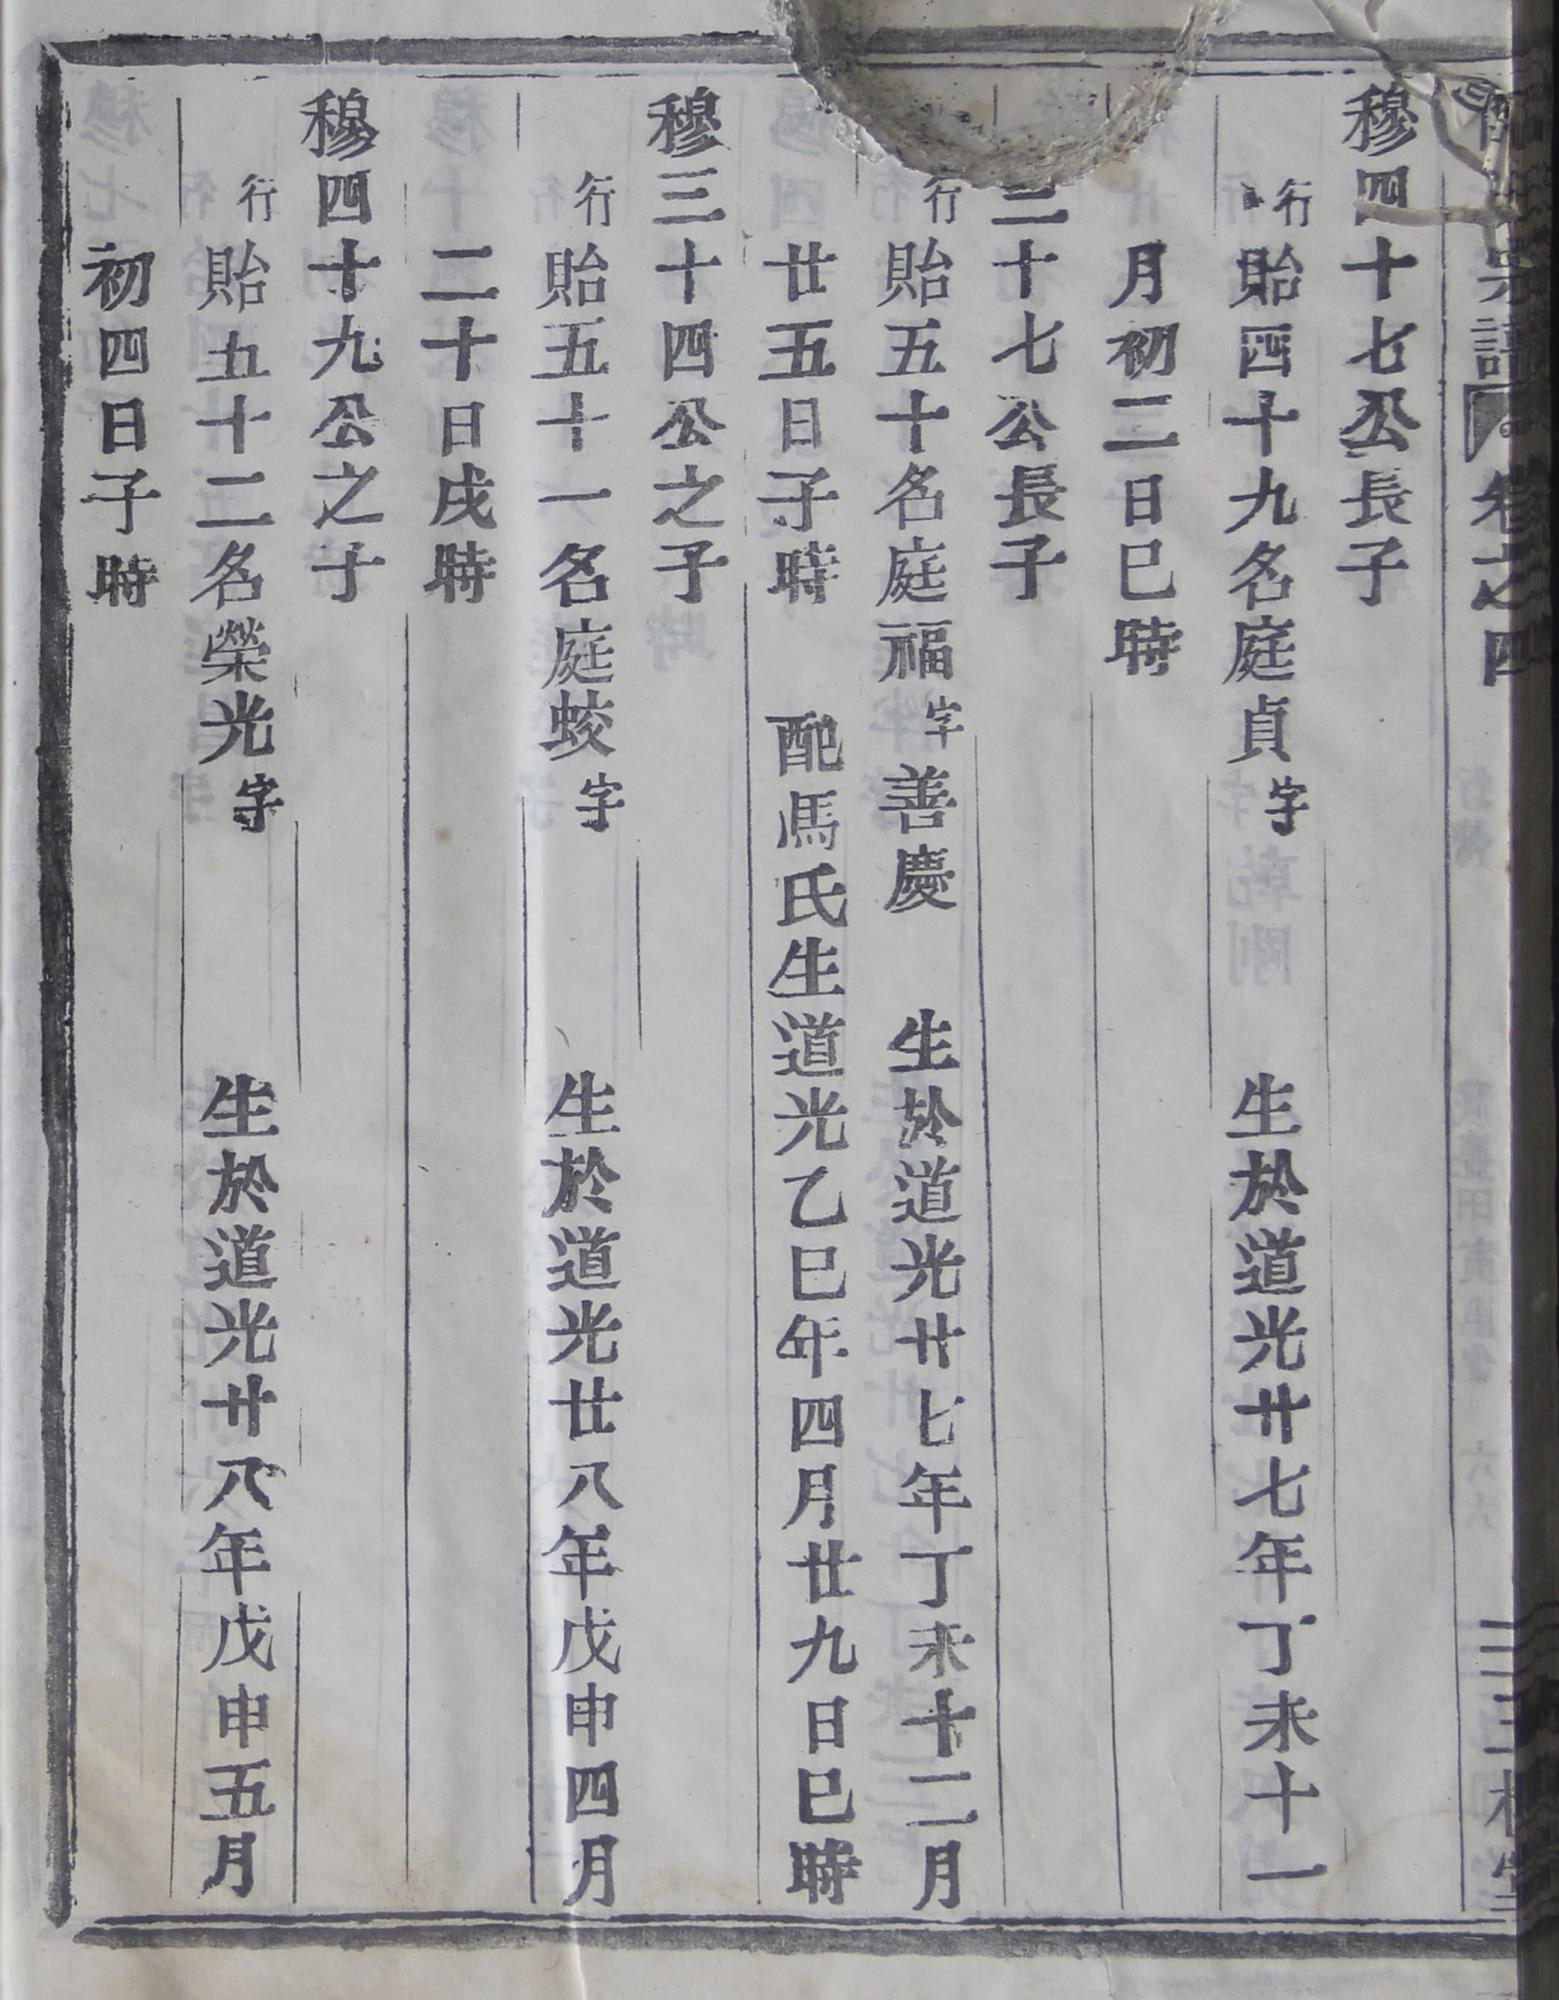 宗譜 卷之四 三槐堂
穆四十七公長子
行貽四十九名庭貞字 生於道光廿七年丁未十一
月初二日巳時
三十七公長子
行貽五十名庭福字善慶 生於道光廿七年丁未十二月
廿五日子時 配馮氏生道光乙巳年四月廿九日巳時
穆三十四公之子
行貽五十一名庭蛟字 生於道光廿八年戊申四月
二十日戌時
穆四十九公之子
行貽五十二名榮光字 生於道光廿八年戊申五月
初四日子時